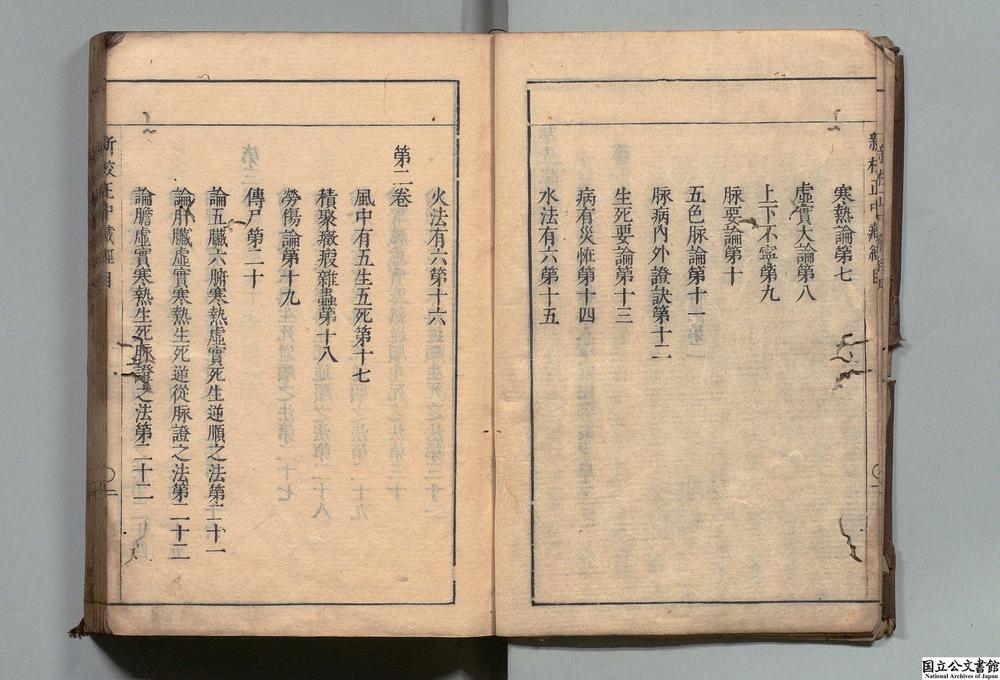 新校正中藏經目
寒熱論第七
虛實大論第八
上下不寧第九
脉要論第十
五色脉論第十一
脉病內外證訣第十二
生死要論第十三
病有災恠第十四
水法有六第十五
火法有六第十六
第二卷
風中有五生五死第十七
積聚癥瘕雜蟲第十八
勞傷論第十九
傳尸第二十
論五臟六腑寒熱虛實死生逆順之法第二十一
論肝臟虛實寒熱生死逆從脉證之法第二十二
論膽虛實寒熱生死脉證之法第二十二
新校正中藏經目
国立公文書館
National Archives of Japan